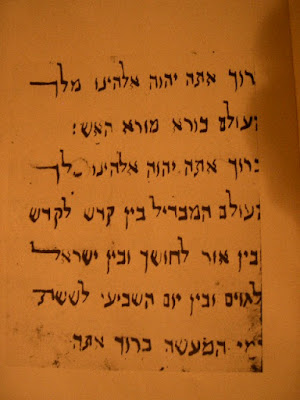 ברוך אתה יהוה אלהינו מלך
העולם בורא מורא האש:
ברוך אתה יהוה אלהינו מלך
העולם המבדיל בין קדש לקדש
ובין אור לחושך ובין ישראל
לגוים ובין יום השביעי לששת
ימי המעשה ברוך אתה